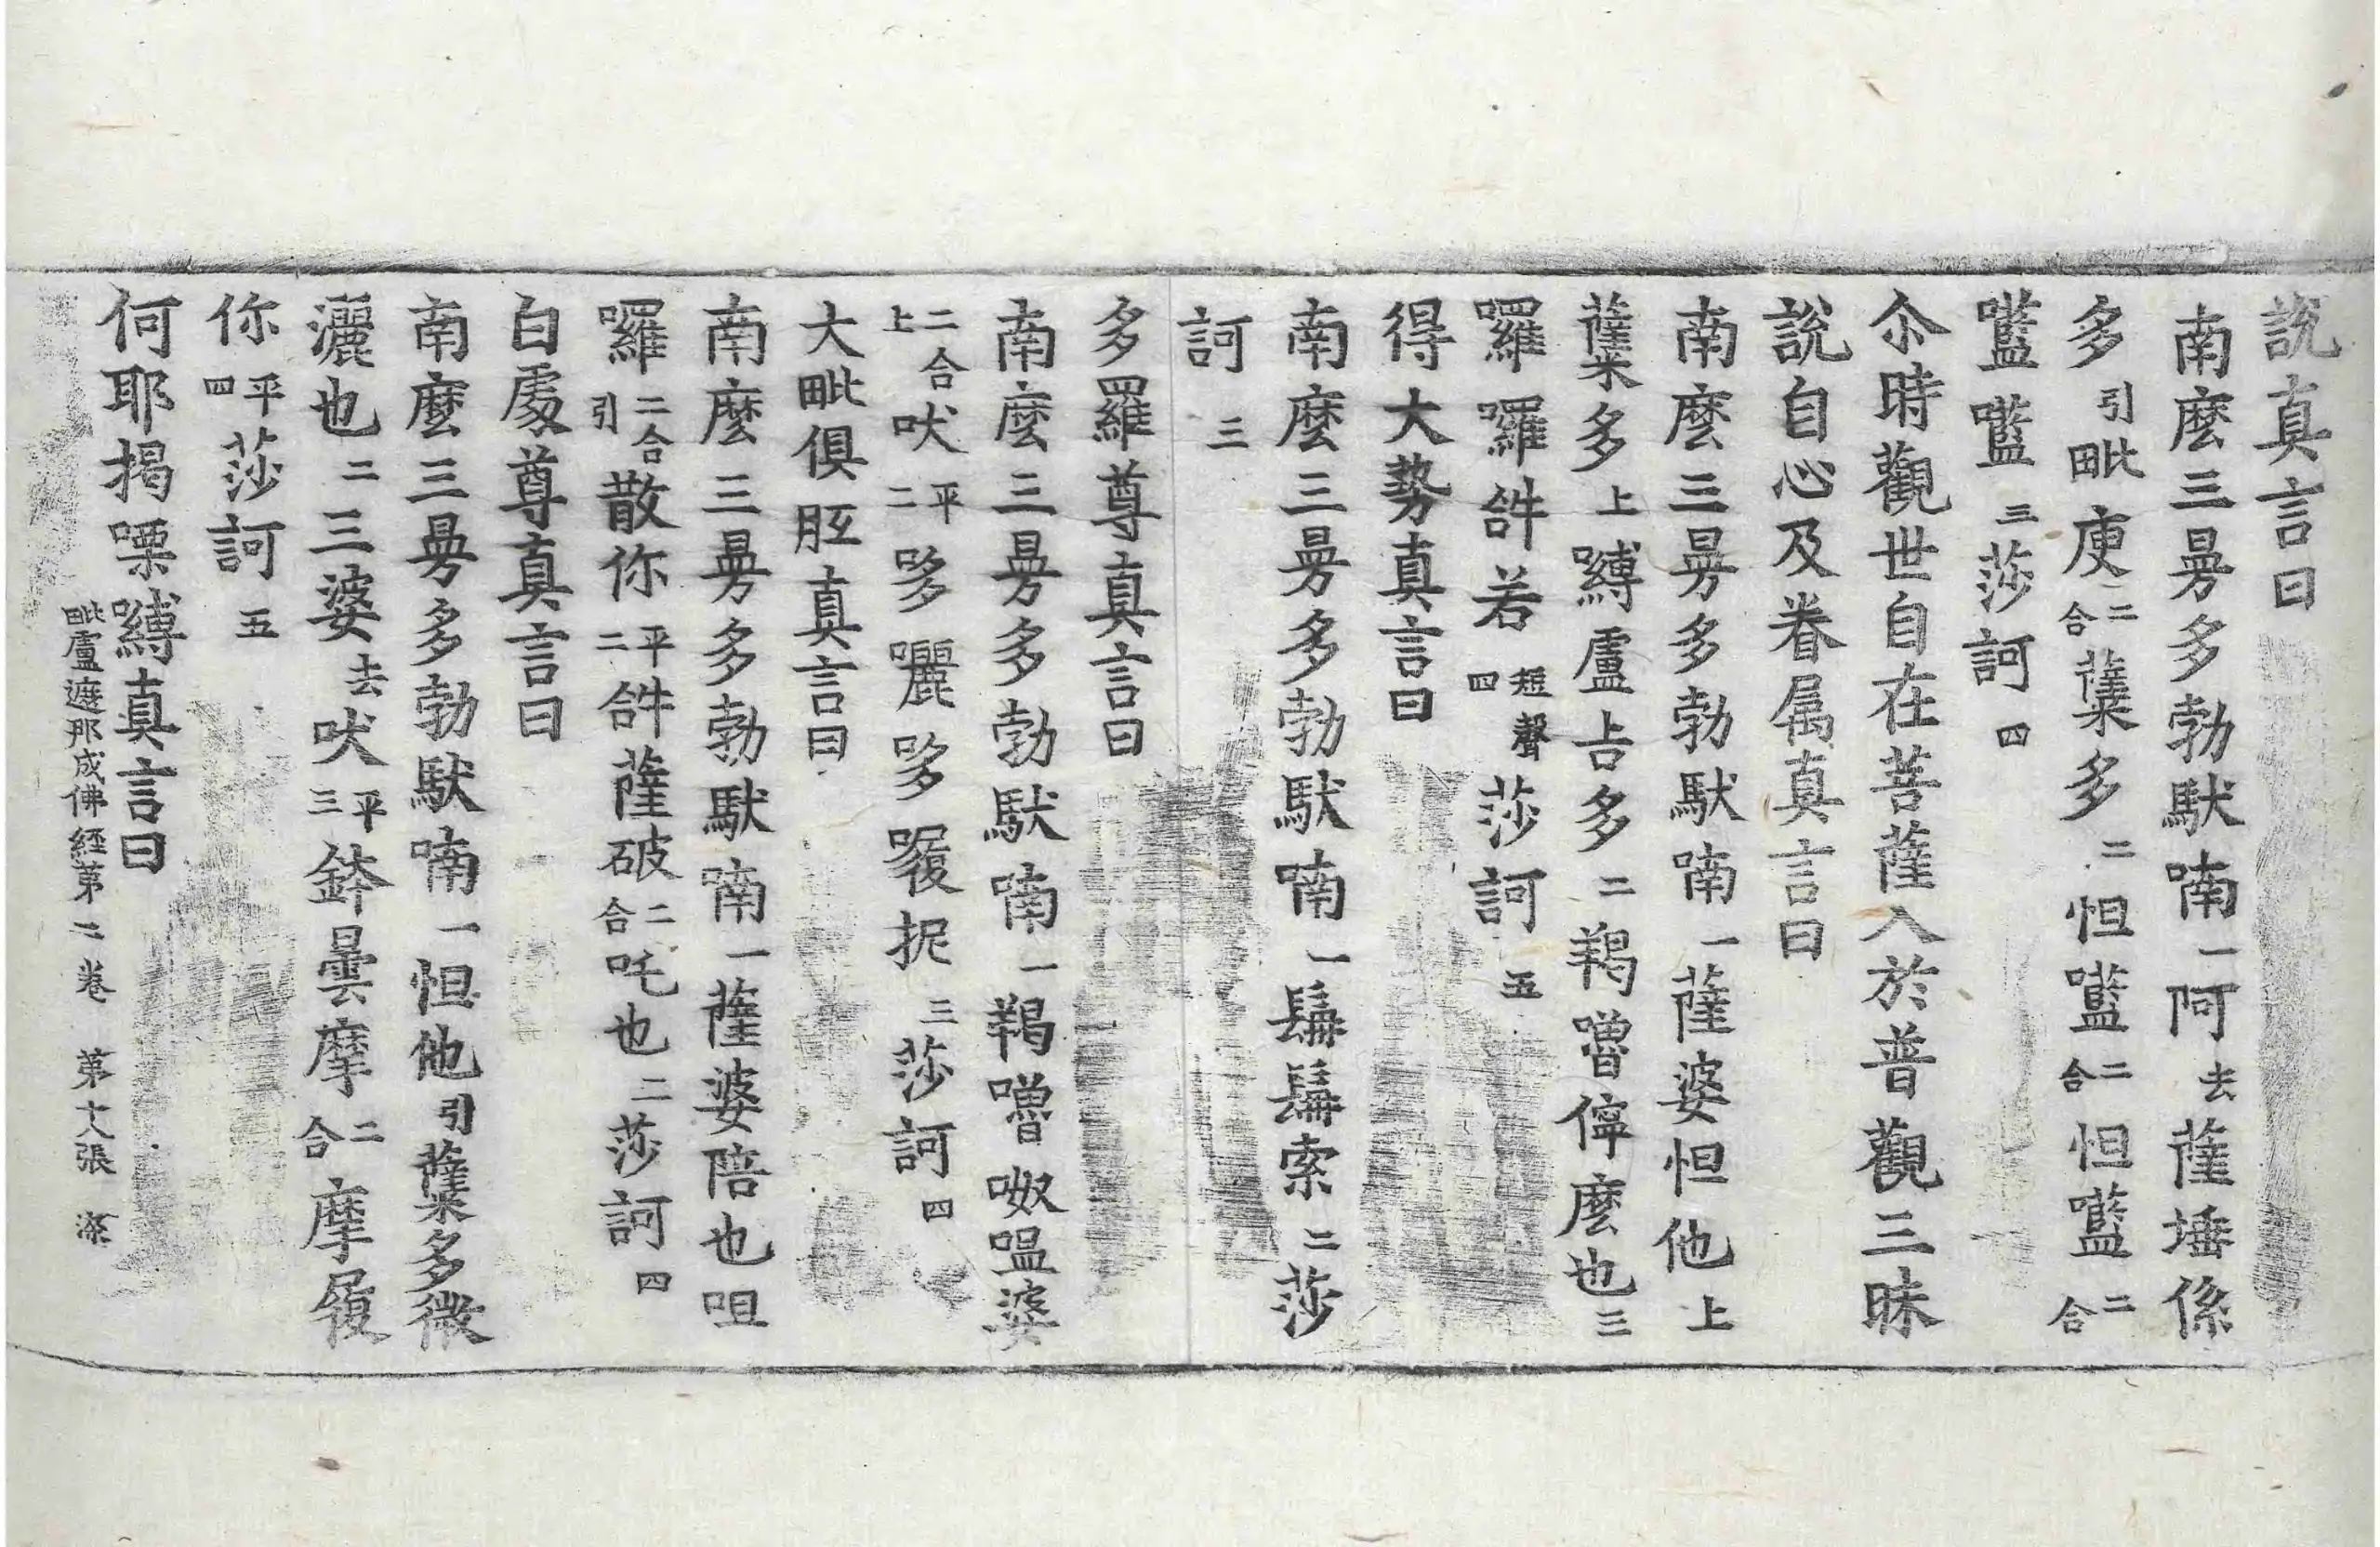 說真言曰
南麽三曼多勃馱喃一阿去薩埵係
多引毗庾二合蘖多二怛囕二合怛囕二合
囕囕三莎訶四
尒時觀世自在菩薩入於普觀三昧
說自心及眷属真言曰
南麽三曼多勃馱喃一薩婆怛他上
蘖多上嚩盧吉多二羯嚕儜麽也三
囉囉訲若短聲四莎訶五
得大勢真言曰
南麽三曼多勃馱喃一髯髯索二莎
訶三
多羅尊真言曰
南麽三曼多勃馱喃一羯嚕呶嗢婆
二合上吠平二哆囇哆囇抳三莎訶四
大毗俱胝真言曰
南麽三曼多勃馱喃一薩婆陪也咀
囉二合引散你平二訲薩破二合吒也二莎訶四
白處尊真言曰
南麽三曼多勃馱喃一怛他引蘖多微
灑也二三婆去吠平三鉢曇摩二合摩履
你平四莎訶五
何耶揭㗚嚩真言曰
毗盧遮那成佛經第二卷 第十八張 深